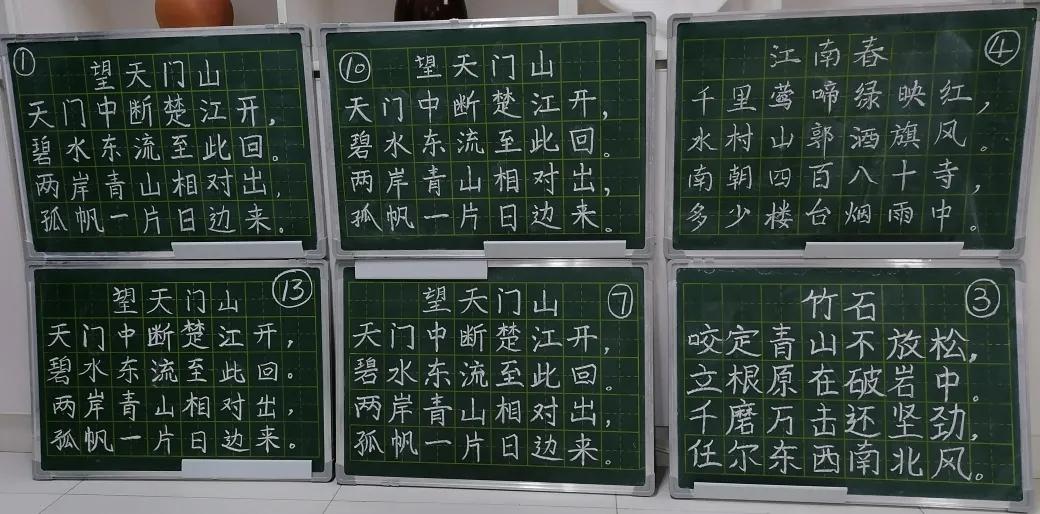 ①
望天门山
天门中断楚江开，
碧水东流至此回。
两岸青山相对出，
孤帆一片日边来。
⑩
望天门山
天门中断楚江开，
碧水东流至此回。
两岸青山相对出，
孤帆一片日边来。
④
江南春
千里莺啼绿映红，
水村山郭酒旗风。
南朝四百八十寺，
多少楼台烟雨中。
⑬
望天门山
天门中断楚江开，
碧水东流至此回。
两岸青山相对出，
孤帆一片日边来。
⑦
望天门山
天门中断楚江开，
碧水东流至此回。
两岸青山相对出，
孤帆一片日边来。
③
竹石
咬定青山不放松，
立根原在破岩中。
千磨万击还坚劲，
任尔东西南北风。